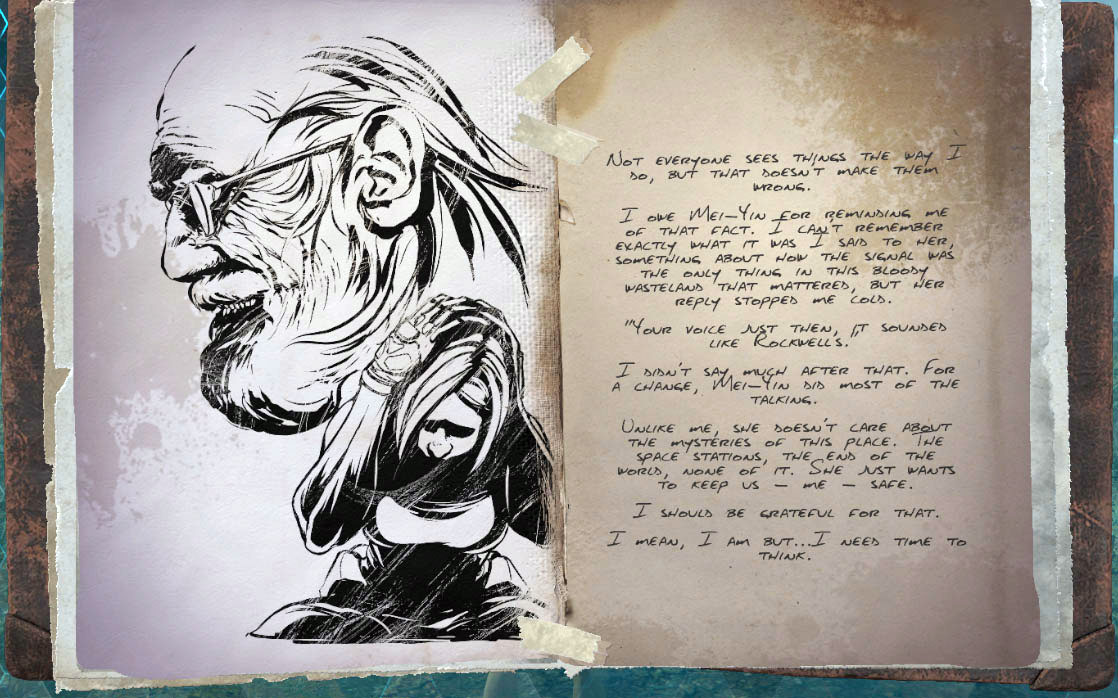 Not everyone sees things the way I
do, but that doesn't make them
wrong.
I owe Mei-Yin for reminding me
of that fact. I can't remember
exactly what it was I said to her,
something about how the signal was
the only thing in this bloody
wasteland that mattered, but her
reply stopped me cold.
"Your voice just then, it sounded
like Rockwell's."
I didn't say much after that. For
a change, Mei-Yin did most of the
talking.
Unlike me, she doesn't care about
the mysteries of this place. The
space stations, the end of the
world, none of it. She just wants
to keep us – me – safe.
I should be grateful for that.
I mean, I am but...I need time to
think.